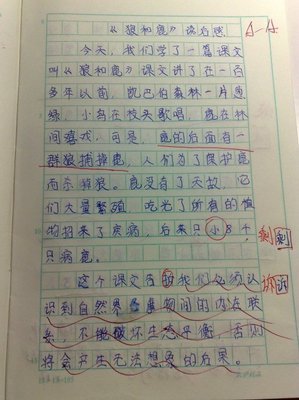 《狼和鹿》读后感
今天,我们学了一篇课文
叫《狼和鹿》课文讲了在一百
多年以前,凯巴伯森林一片葱
绿,小鸟在枝头歌唱,鹿在林
间嬉戏,可是,鹿的后面有一
群狼捕掉鹿,人们为了保护鹿
而杀掉狼。鹿没有了天敌,它
们大量繁殖,吃光了所有的植
物招来了疾病,后来只小8千
只病鹿。
剩 剩
这个课文告诉我们必须认
诉 诉
识到自然界各事物间的内在联
系,不能破坏生态平衡,否则
将会产生无法想象的后果。